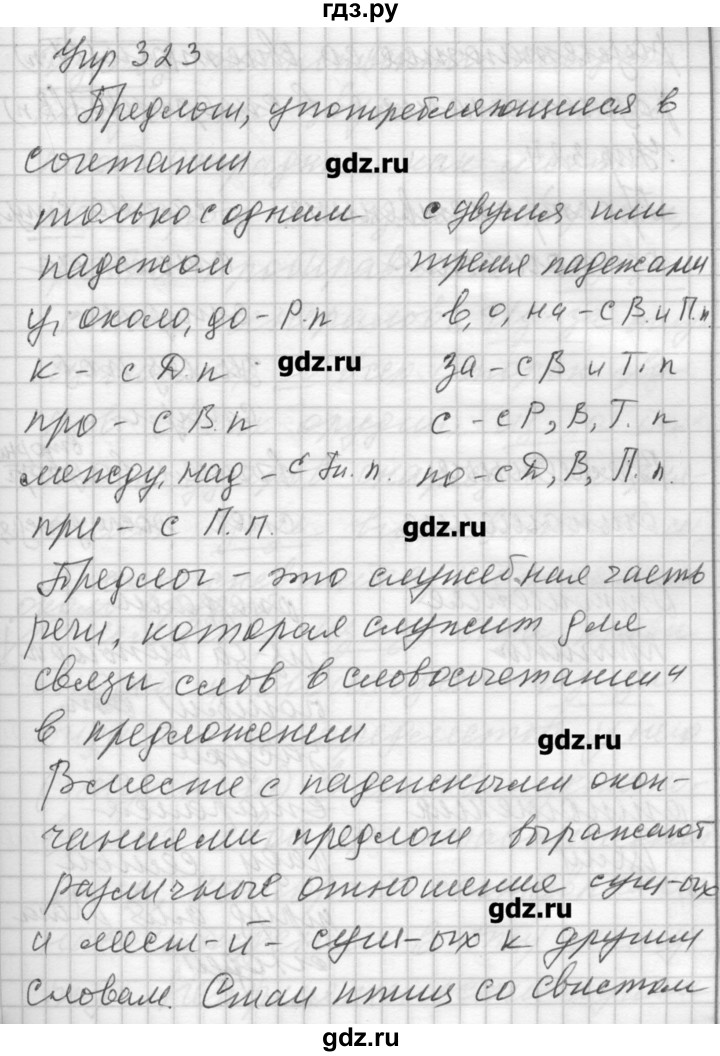 гдз.ру
Упр 323
Предлоги, употребляющиеся в
сочетании
gdz.ru
только с одним с двумя или
падежом тремя падежами
у, около, до - Р.п в, о, на - с В. и П.п.
к - с Д.п gdz.ru за - с В и Т. п
про - с В.п с - с Р, В, Т. п
между, над - с Тв. п. по - с Д, В, П. п.
при - с П.п. gdz.ru
Предлог - это служебная часть
речи, которая служит для
связи слов в словосочетании и
в предложении
gdz.ru
Вместе с падежными окон-
чаниями предлоги выражают
различные отношения сущ-ых
gdz.ru
и мест-й - сущ-ых к другим
словам. Стаи птиц со свистом
gdz.ru